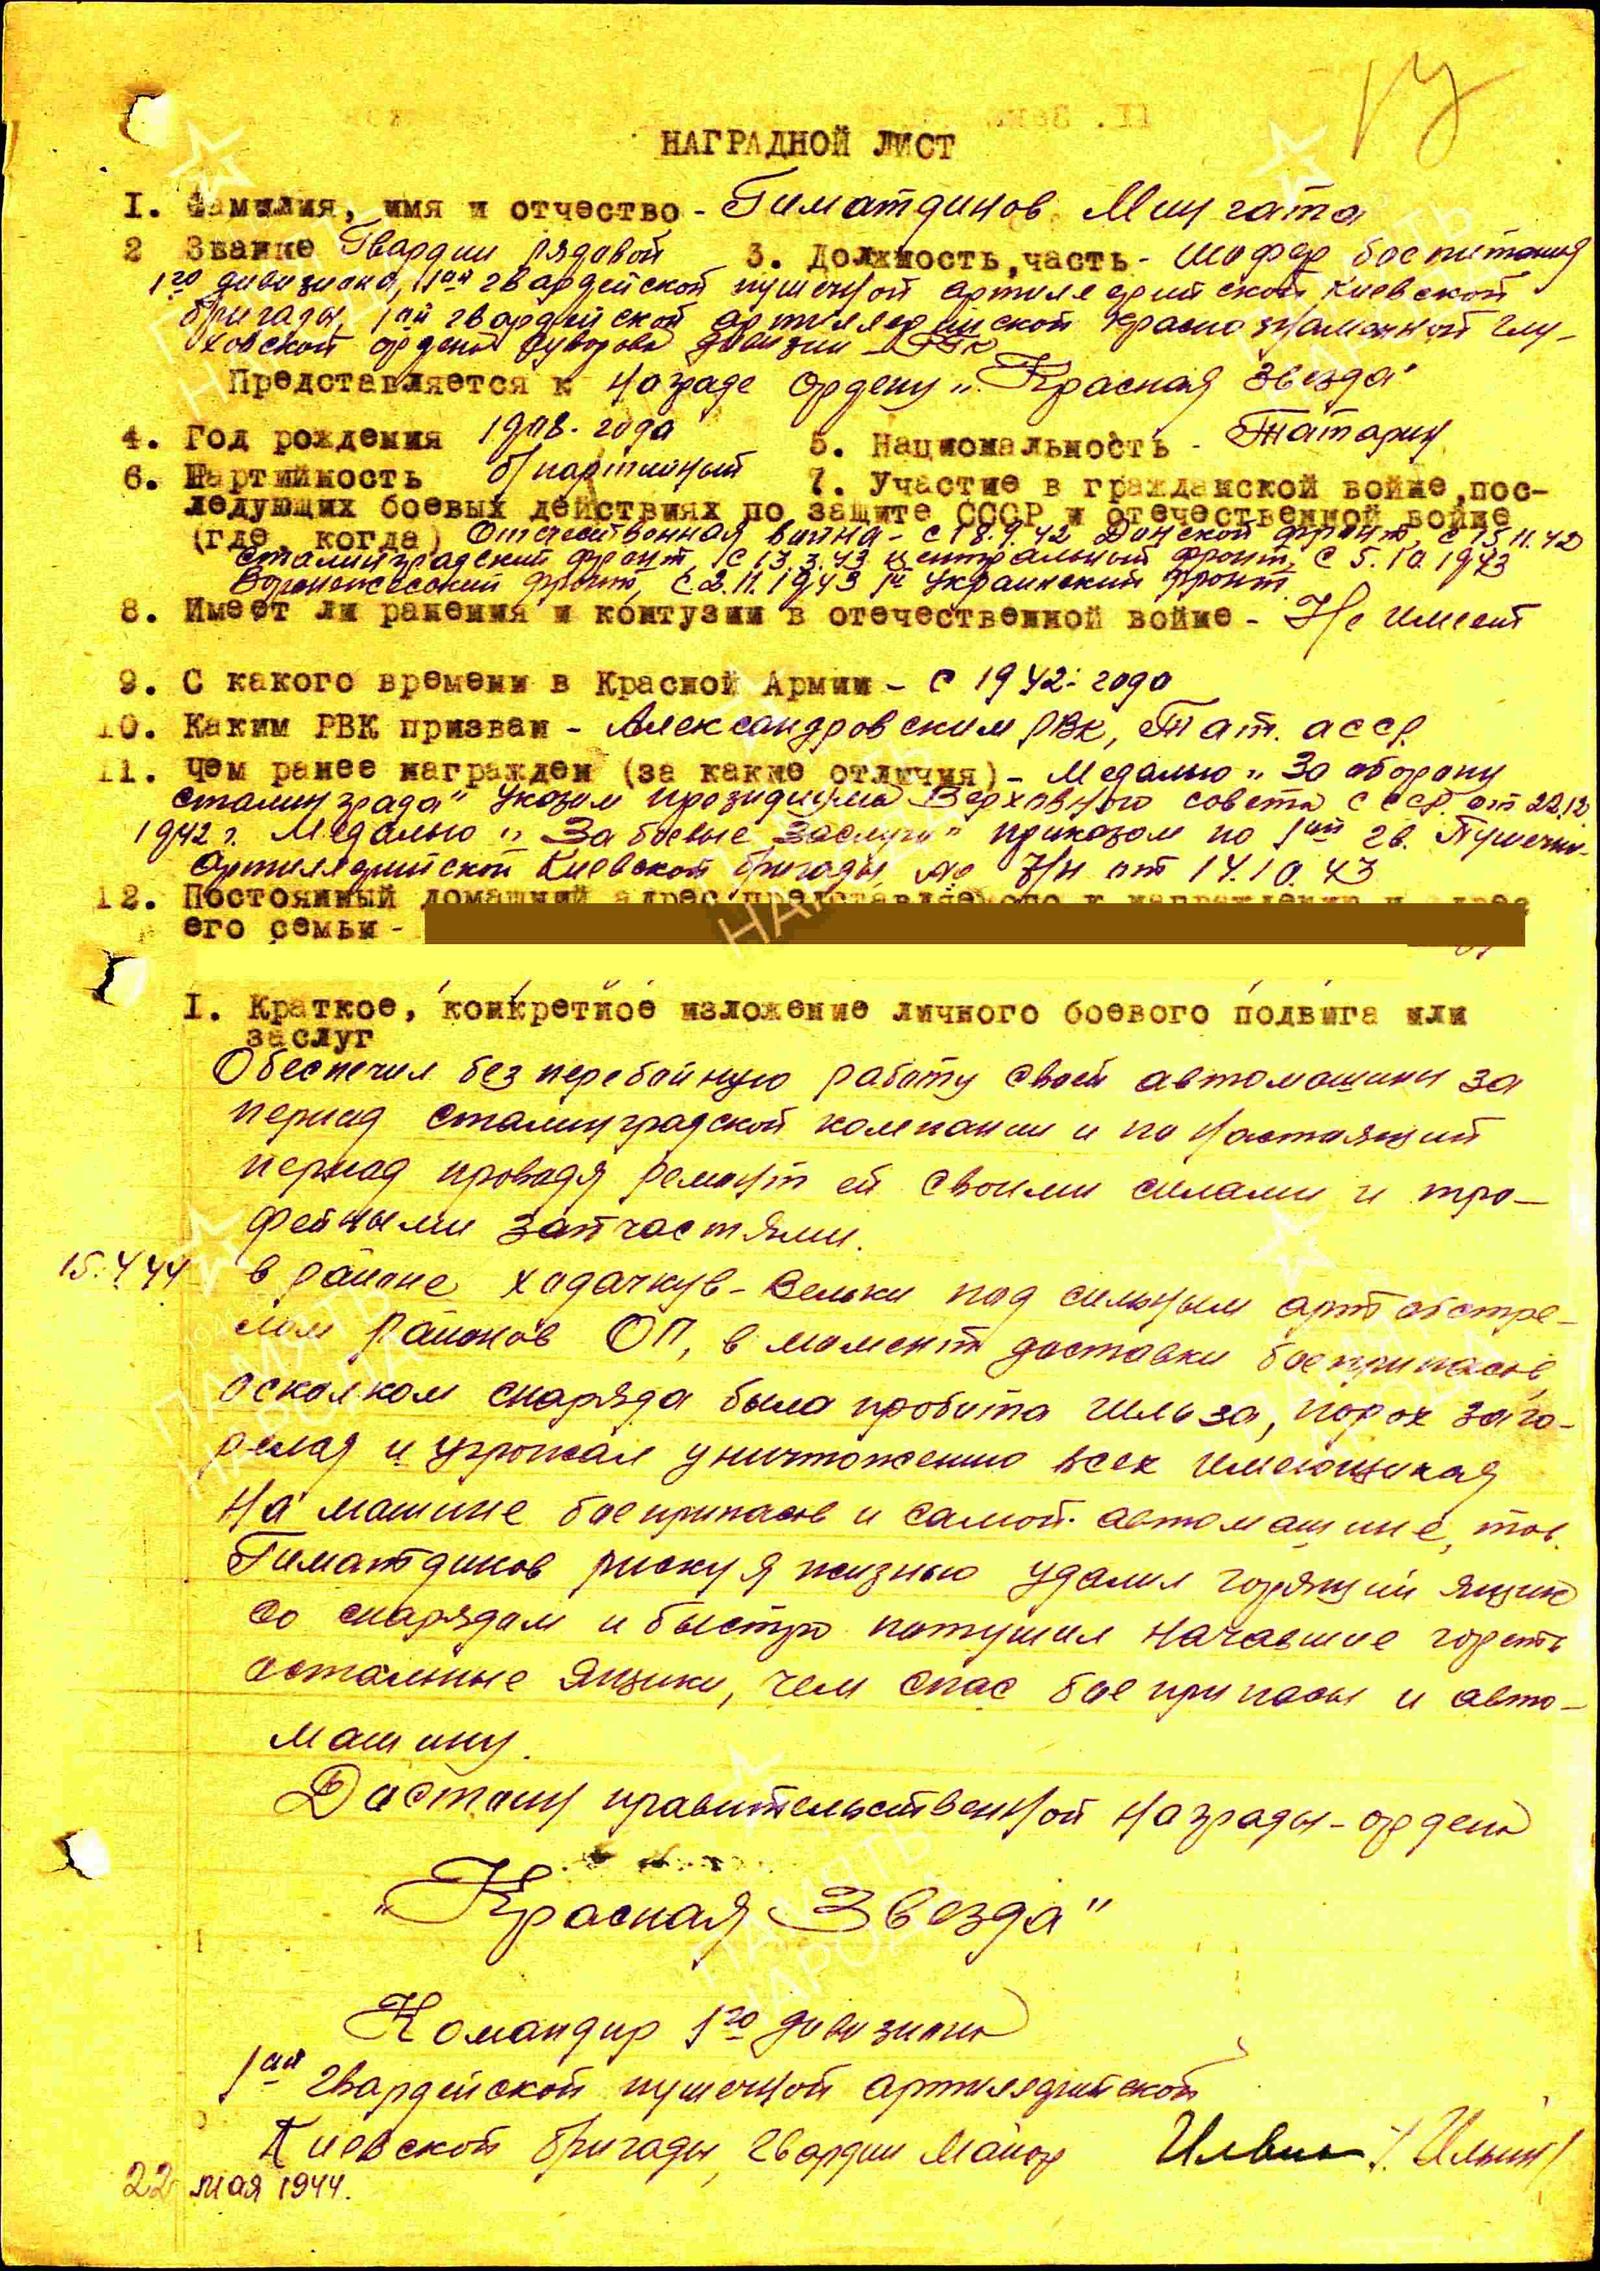 НАГРАДНОЙ ЛИСТ
1. Фамилия, имя и отчество - Гиматдинов Мингата
2 Звание Гвардии рядовой 3. Должность, часть - Шофер боепитания
1го дивизиона, 1ой гвардейской пушечной артиллерийской Киевской
бригады, 1ой гвардейской артиллерийской Краснознаменной Глу-
ховской ордена Суворова дивизии - РГК
Представляется к награде Ордену "Красная Звезда"
4. Год рождения 1908. года 5. Национальность - Татарин
6. Партийность б/партийный 7. Участие в гражданской войне, пос-
ледующих боевых действиях по защите СССР и отечественной войне
(где, когда) Отечественная война - с 18.9.42 Донской фронт, с 15.11.42
Сталинградский фронт, с 13.3.43 центральный фронт, с 5.10.1943
Воронежский фронт, с 2.11.1943 1й Украинский фронт.
8. Имеет ли ранения и контузии в отечественной войне - Не имеет
9. С какого времени в Красной Армии - с 1942. года
10. Каким РВК призван - Александровским РВК, Тат. асср.
11. Чем ранее награжден (за какие отличия) - Медалью "За оборону
Сталинграда" Указом презид��ума Верховного совета СССР от 22.12
1942 г. Медалью "За боевые заслуги" приказом по 1ой гв. Пушечно-
Артиллерийской Киевской бригады № 7/н от 14.10.43
12. Постоянный домашний адрес представляемого к награждению и адрес
его семьи -
I. Краткое, конкретное изложение личного боевого подвига или
заслуг
Обеспечил безперебойную работу своей автомашины за
период сталинградской компании и по настоящий
период проводя ремонт ей своими силами и тро-
фейными запчастями.
15.4.44 в районе Ходачкув-Вельки под сильным артобстре-
лом районов ОП, в момент доставки боеприпасов,
осколком снаряда была пробита гильза, порох заго-
релся и угрожал уничтожению всех имеющихся
на машине боеприпасов и самой автомашине, тов.
Гиматдинов рискуя жизнью удалил горящий ящик
со снарядом и быстро потушил начавшие гореть
остальные ящики, чем спас боеприпасы и авто-
машину.
Достоин правительственной награды - орден
"Красная Звезда"
Командир 1го дивизиона
1ой гвардейской пушечной артиллерийской
Киевской бригады, гвардии Майор /Ильин/
22 мая 1944.
ПАМЯТЬ
НАРОДА